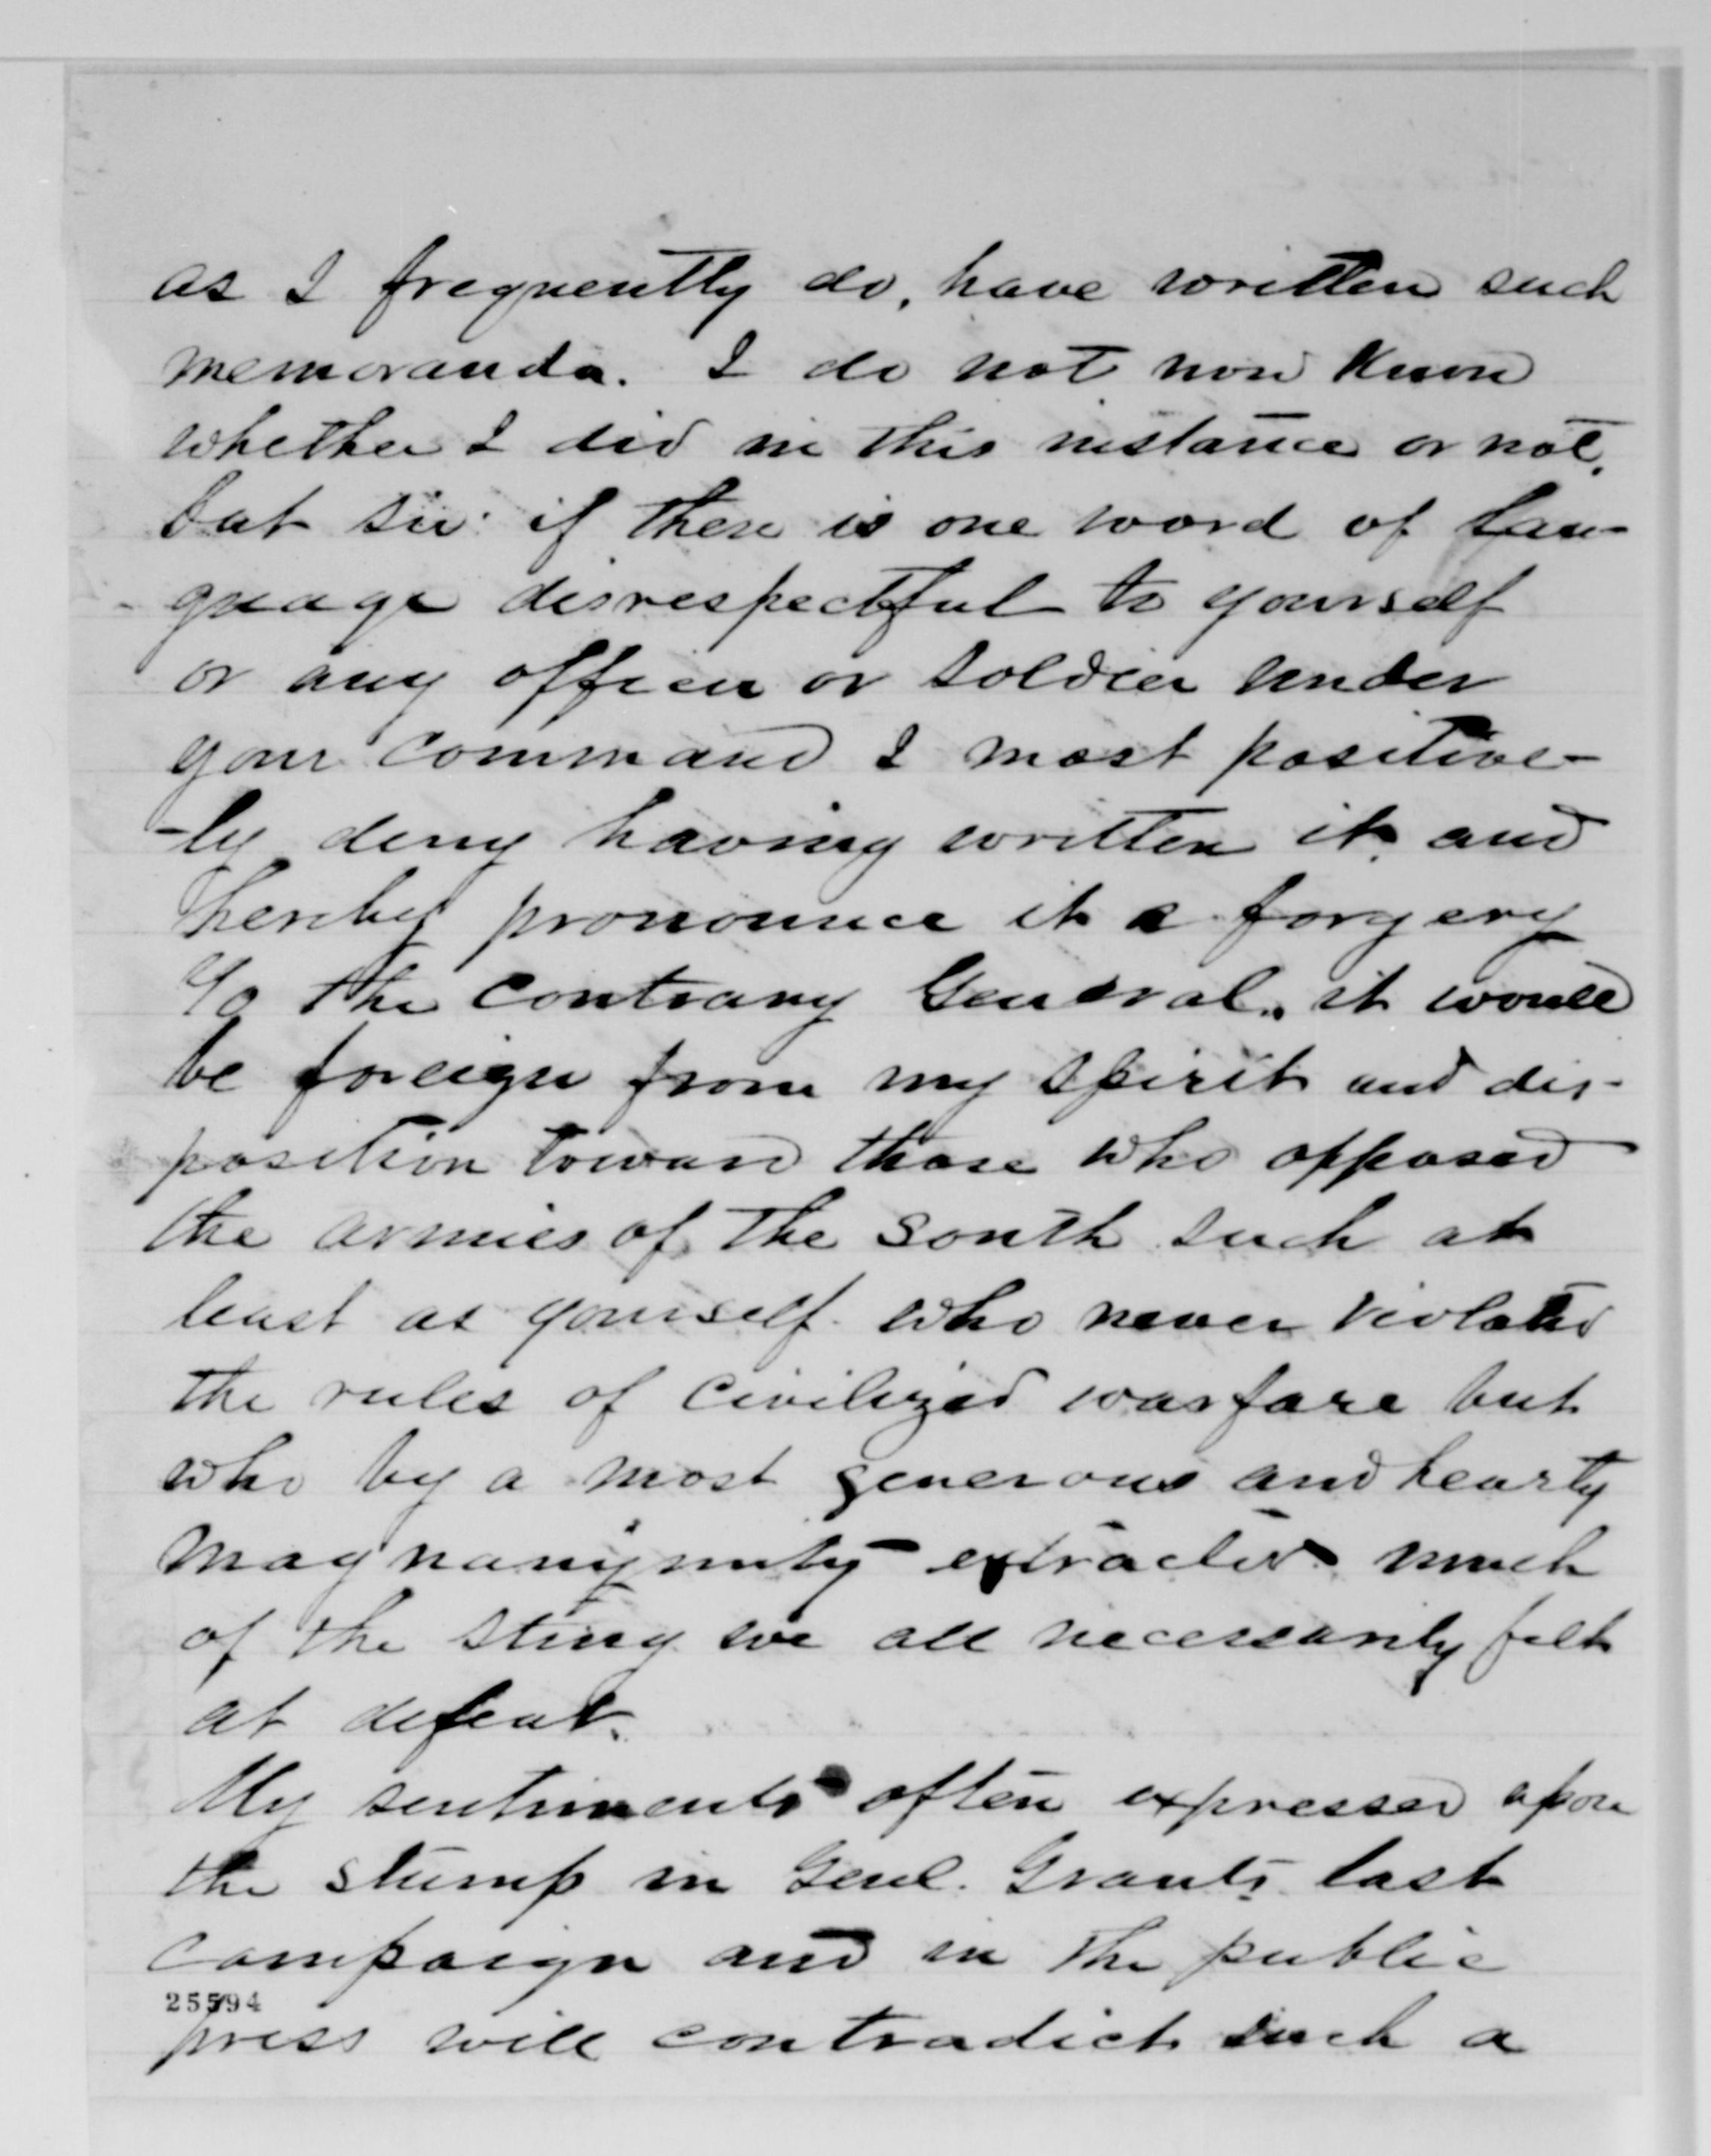 as I frequently do, have written such
memoranda. I do not now know
whether I did in this instance or not.
but sir: if there is one word of lan-
guage disrespectful to yourself
or any officer or soldier under
your command I most positive-
-ly deny having written it, and
hereby pronounce it a forgery
To the contrary General, it would
be foreign from my spirit and dis-
position toward those who opposed
the armies of the south such at
least as yourself who never violated
the rules of civilized warfare but
who by a most generous and hearty
magnanymity extracted much
of the sting we all necessarily felt
at defeat.
My sentiments often expressed upon
the stump in Genl. Grants last
campaign and in the public
25594
press will contradict such a